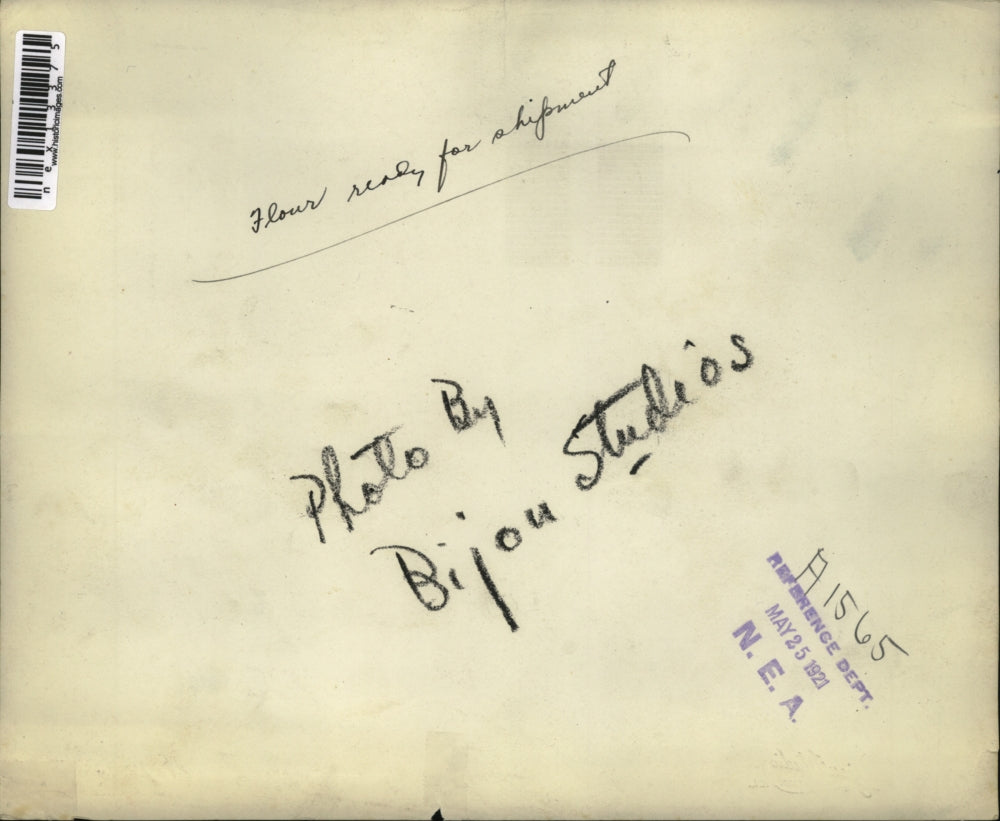 nex13375
www.historicimages.com
Flour ready for shipment
Photo By
Bijou Studios
A1565
REFERENCE DEPT.
MAY 25 1921
N. E. A.